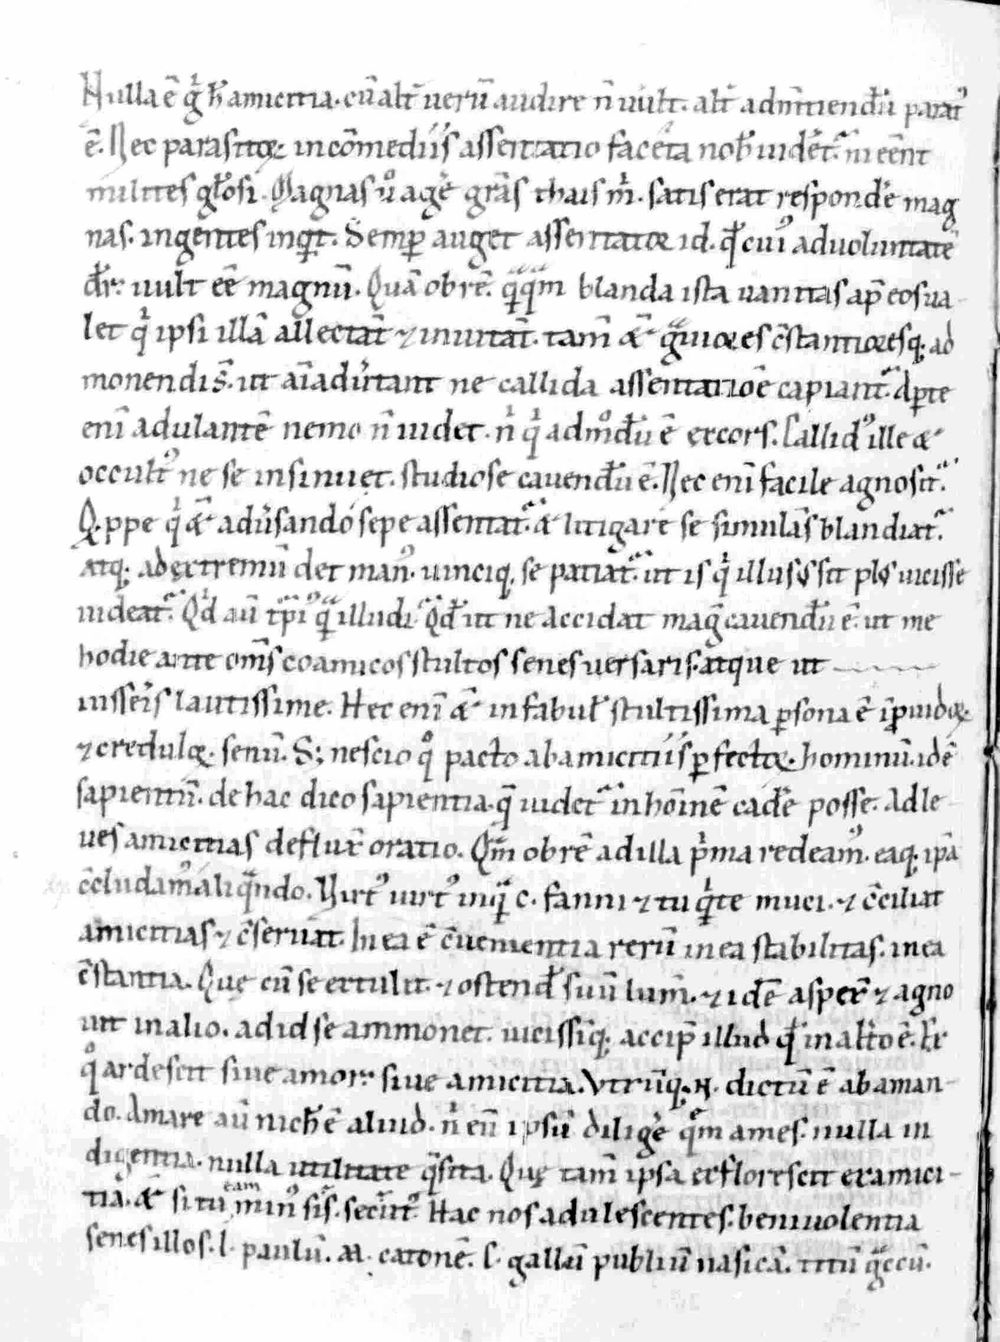 Nulla ē g̊ h̄ amicitia. cū alt̄ uerū audire n̄ uult. alt̄ ad m̄tiendū parat᷒
ē. Nec parasitoꝝ in cōmediis assentatio faceta nob̄ uidēt᷑. ni eēnt
milites gl̄osi. Magnas ů agē grās thais m̄. satis erat respondē mag
nas. ingentes inq̇t. Semp̄ auget assentator id. qđ cui᷒ ad uoluntatē
dr̄: uult eē magnū. Quā ob rē. q̄q̄m blanda ista uanitas ap̄ eos ua
let qͥ ipsi illā allectāt ⁊ inuitāt. tam̄ &̄ g̃uiores c̄stantioresq; ad
monendi s̄. ut aīaduertant ne callida assentatioē capiant᷑. Apte
enī adulantē nemo n̄ uidet. nͥ qͥ admodū ē excors. Callid᷒ ille &
occult᷒ ne se insinuet. studiose cauendū ē. Nec enī facile agnoscit᷑.
Q̇ppe qͥ &̄ aduersando sepe assentat᷑. & litigare se simulās blandiat᷑.
atq; ad extremū det man᷒. uinciq; se patiat᷑. ut is qͥ illusus sit pl᷒ uicisse
uideat᷑. Qd̄ aū t᷑pi᷒ q̄ illudi. Qđ ut ne accidat mag̃ cauendū ē. ut me
hodie ante om̄s comicos stultos senes uersaris. atque ut
iusseris lautissime. Hec enī &̄ in fabul̄ stultissima p̱sona ē īprouidoꝝ
⁊ creduloꝝ senū. S; nescio q̊ pacto ab amicitiis p̱fectoꝝ hominū. id ē
sapientiū. de hac dico sapientia. q̄ uidet᷑ in hoīnē cadē posse. ad le
ues amicitias deflux̄ oratio. Qm̄ ob rē ad illa p̄ma redeam᷒. eaq; ipā
c̄cludam᷒ aliq̄ndo. Virt᷒ uirt᷒ inq̄ c. fanni ⁊ tu q̇te muci. ⁊ c̄ciliat
amicitias ⁊ c̄seruat. In ea ē c̄uenientia rerū in ea stabilitas. in ea
c̄stantia. Quę cū se extulit. ⁊ ostendđ suū lum̄. ⁊ idē asper̄ ⁊ agno
uit in alio. ad id se ammouet. uicissiq; accip̄ illud qđ in alt̄o ē. Ex
q̊ ardescit siue amor: siue amicitia. Vtrūq; .n. dictū ē ab aman
do. Amare aū nichͥ ē aliud. nͥ eū ipsū diligē qm̄ ames. nulla in
digentia. nulla utilitate q̄sita. Quę tam̄ ipsa efflorescit ex amici
tia. &̄ si tu eam min᷒ sis. secut᷒. Hac nos adulescentes. beniuolentia
senes illos. l. paulū. M. catonē. C. gallū publiū nasicā. titū g̃ccū.